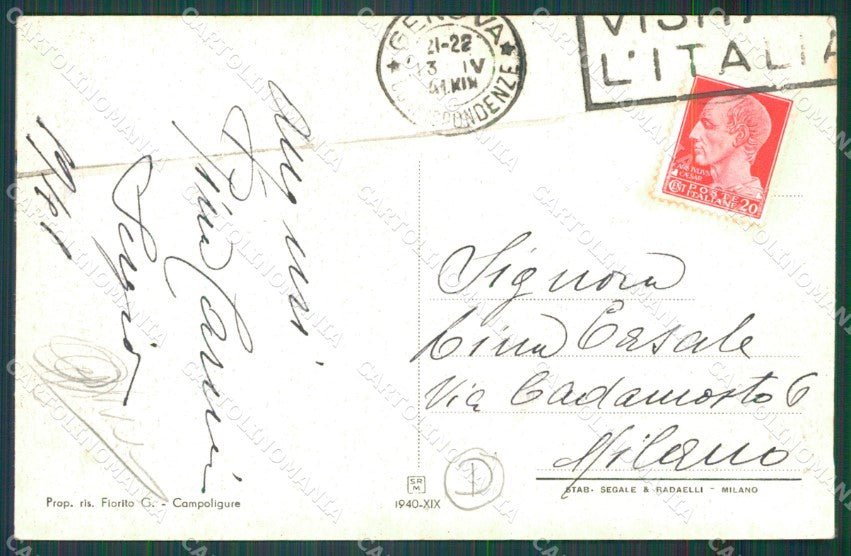 GENOVA
21-22
3 IV
41 XIX
CORRISPONDENZE
VISITA
L'ITALIA
IVLIVS
CAESAR
CENT
POSTE
ITALIANE
20
Auguri
Sergio
1941
Signora
Lina Casale
Via Cadamosto 6
Milano
D
SRM
1940-XIX
STAB. SEGALE & RADAELLI - MILANO
Prop. ris. Fiorito G. - Campoligure
CARTOLINOMANIA